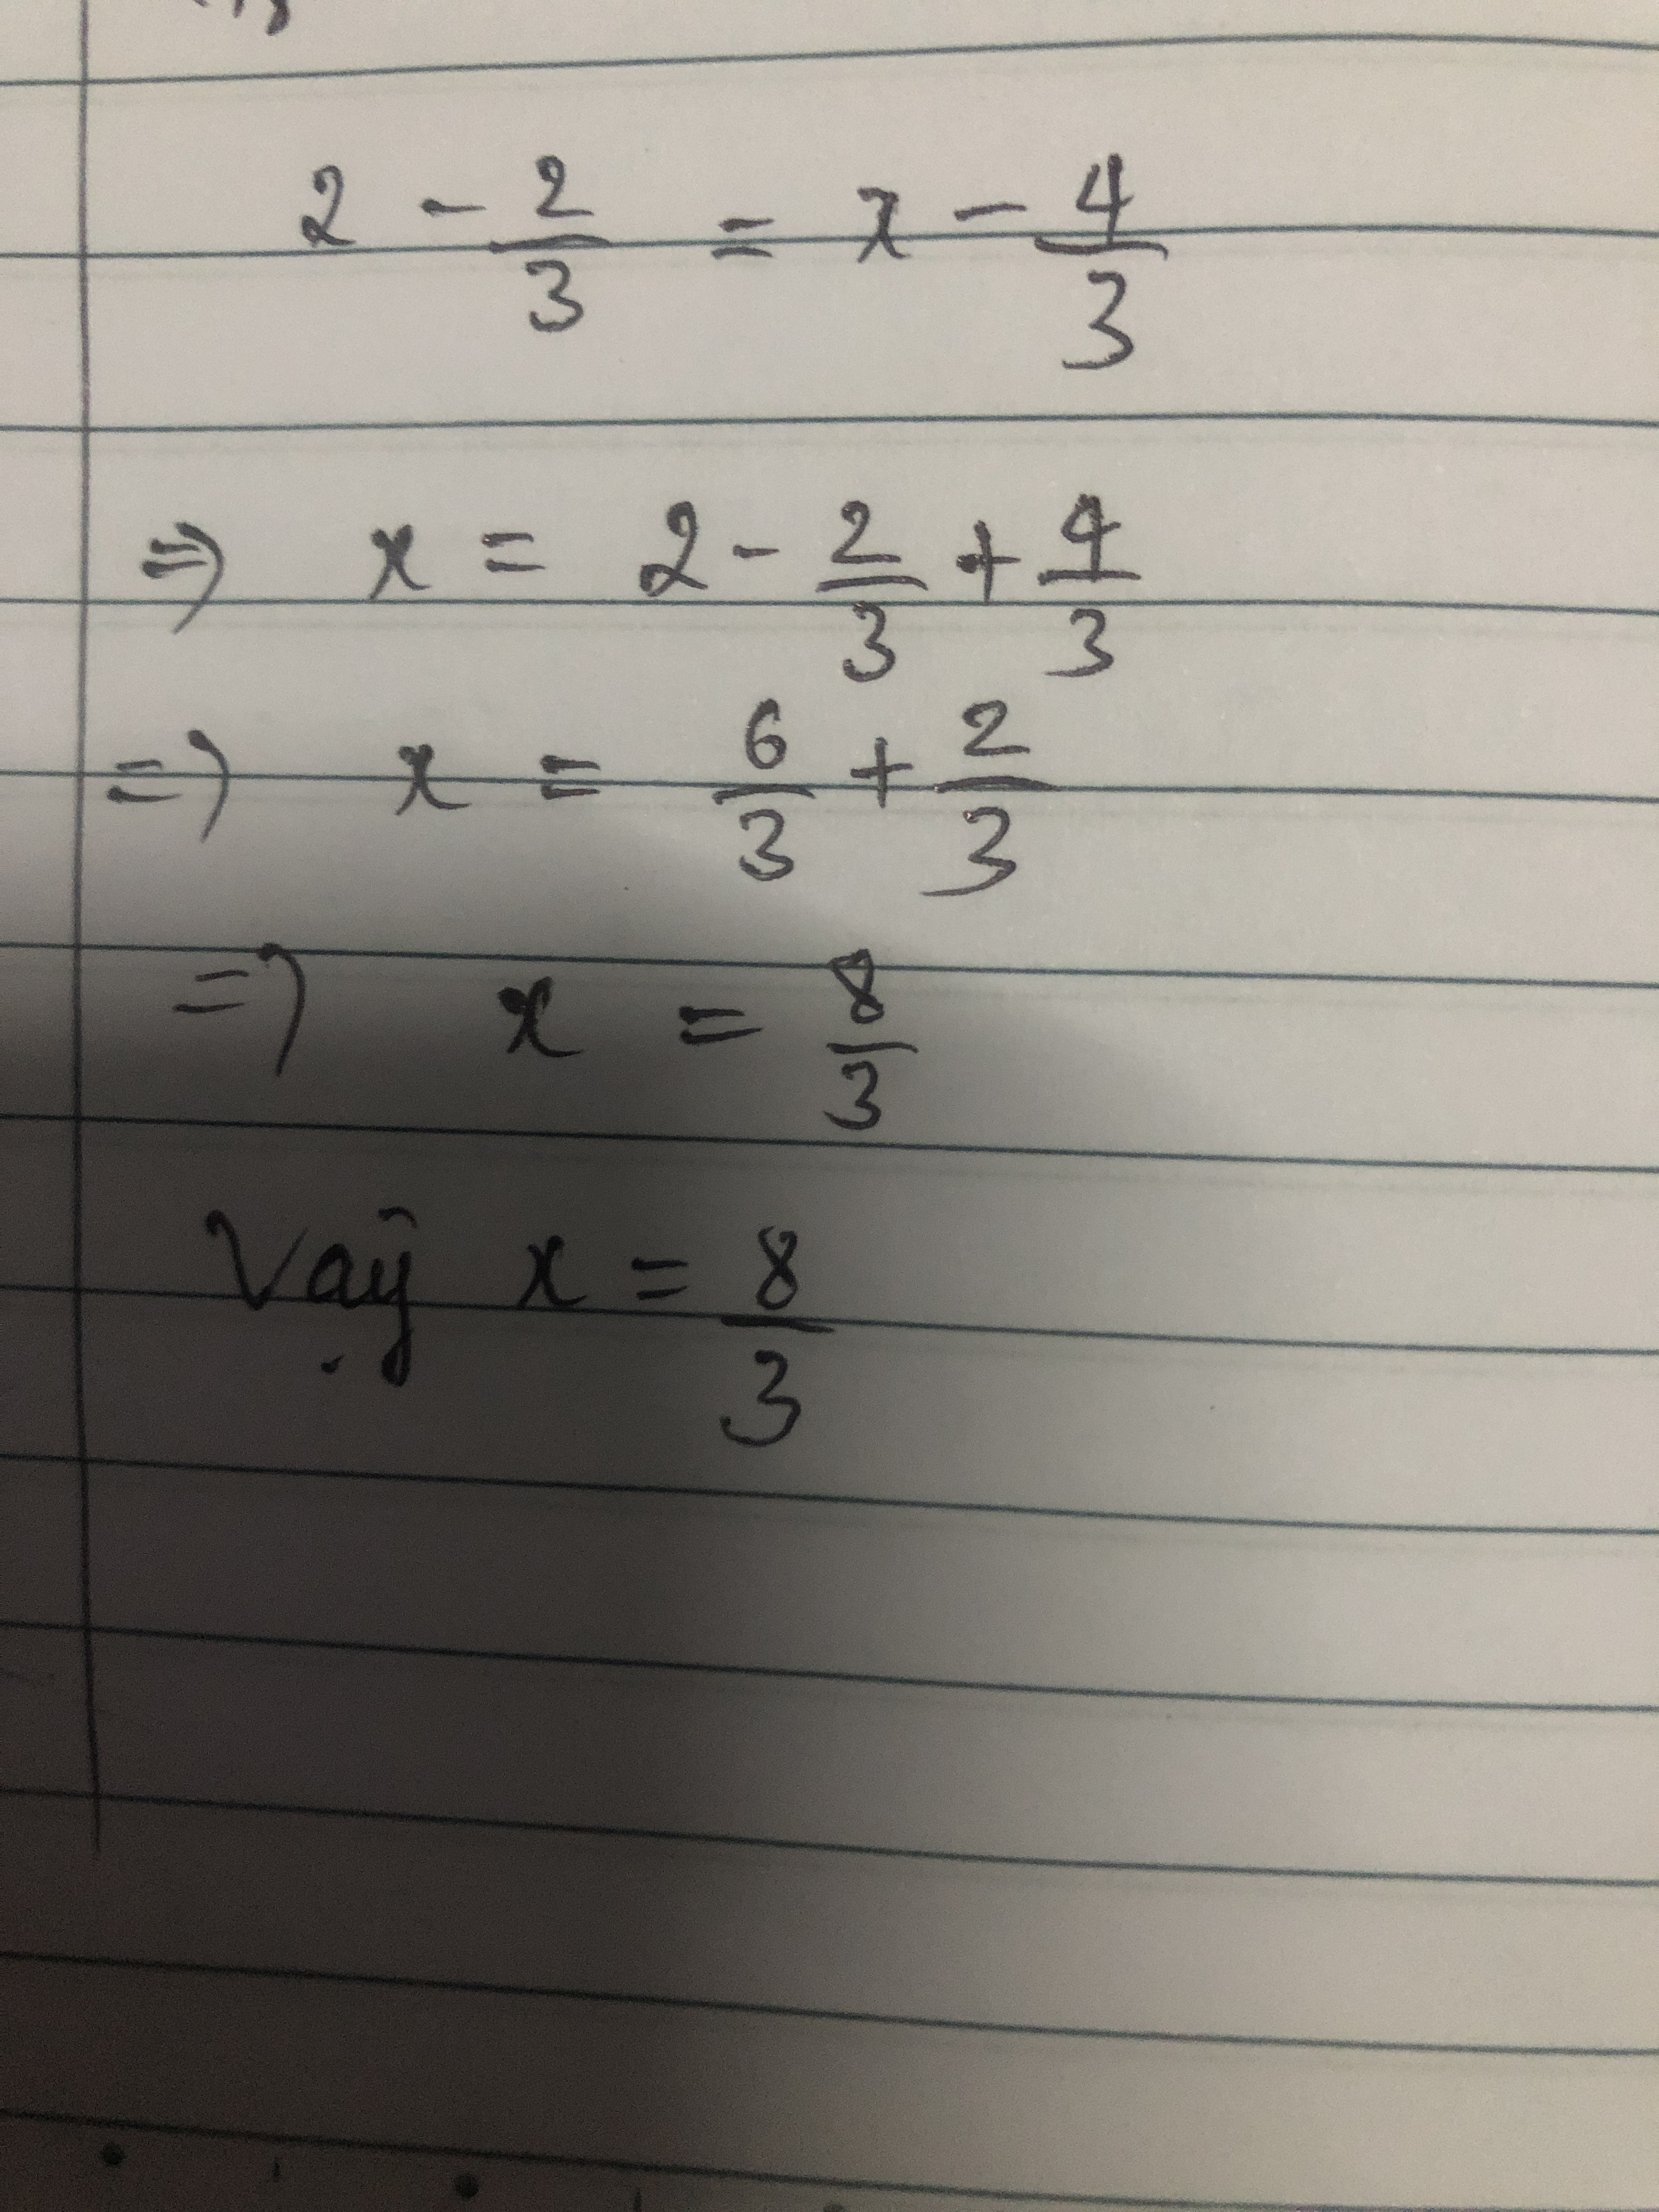 2 - 2/3 = x - 4/3
=> x = 2 - 2/3 + 4/3
=> x = 6/3 + 2/3
=> x = 8/3
Vậy x = 8/3